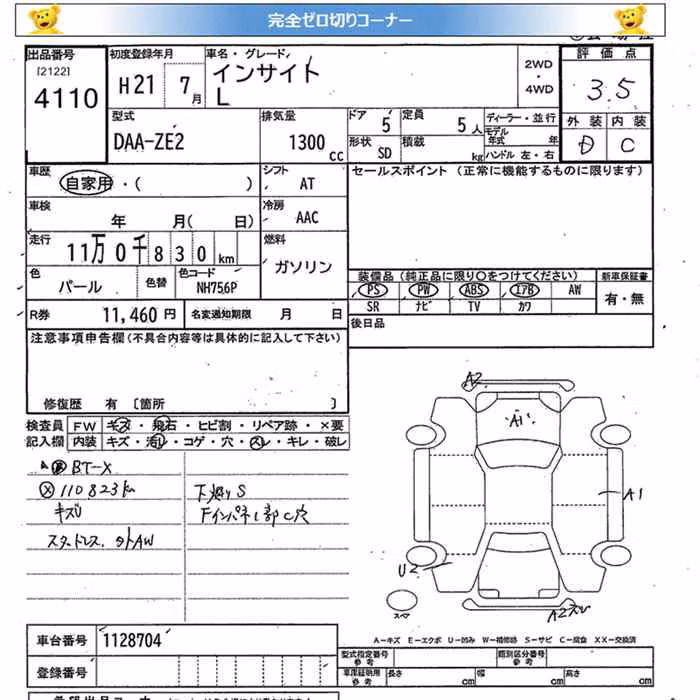 完全ゼロ切りコーナー
出品番号
[2122]
4110
初度登録年月
H21 7月
車名・グレード
インサイト
L
2WD
・
4WD
評価点
3.5
外装 内装
D C
型式
DAA-ZE2
排気量
1300cc
ドア
5
定員
5人
形状
SD
積載
kg
ディーラー・並行
モデル年式 年
ハンドル 左・右
車歴
自家用・( )
シフト
AT
車検
年 月( 日)
冷房
AAC
走行
11万0千830km
燃料
ガソリン
色
パール
色替
色コード
NH756P
R券 11,460円
名変通知期限 月 日
セールスポイント (正常に機能するものに限ります)
装備品 (純正品に限り○をつけてください)
新車保証書
PS PW ABS エアB AW
有・無
SR ナビ TV カワ
後日品
注意事項申告欄(不具合内容等は具体的に記入して下さい)
修復歴 有 〔箇所 〕
検査員記入欄
FW キズ・飛石・ヒビ割・リペア跡・×要
内装 キズ・汚レ・コゲ・穴・スレ・キレ・破レ
BT-X
110823km
キズU
スタッドレス.外AW
下廻りS
FインパネL部C穴
A2
A1
A1
U2
A2スレ
スペア
A-キズ E-エクボ U-凹み W-補修跡 S-サビ C-腐食 XX-交換済
車台番号 1128704
登録番号
型式指定番号 参考
類別区分番号 参考
車庫証明用 参考
長さ cm
幅 cm
高さ cm